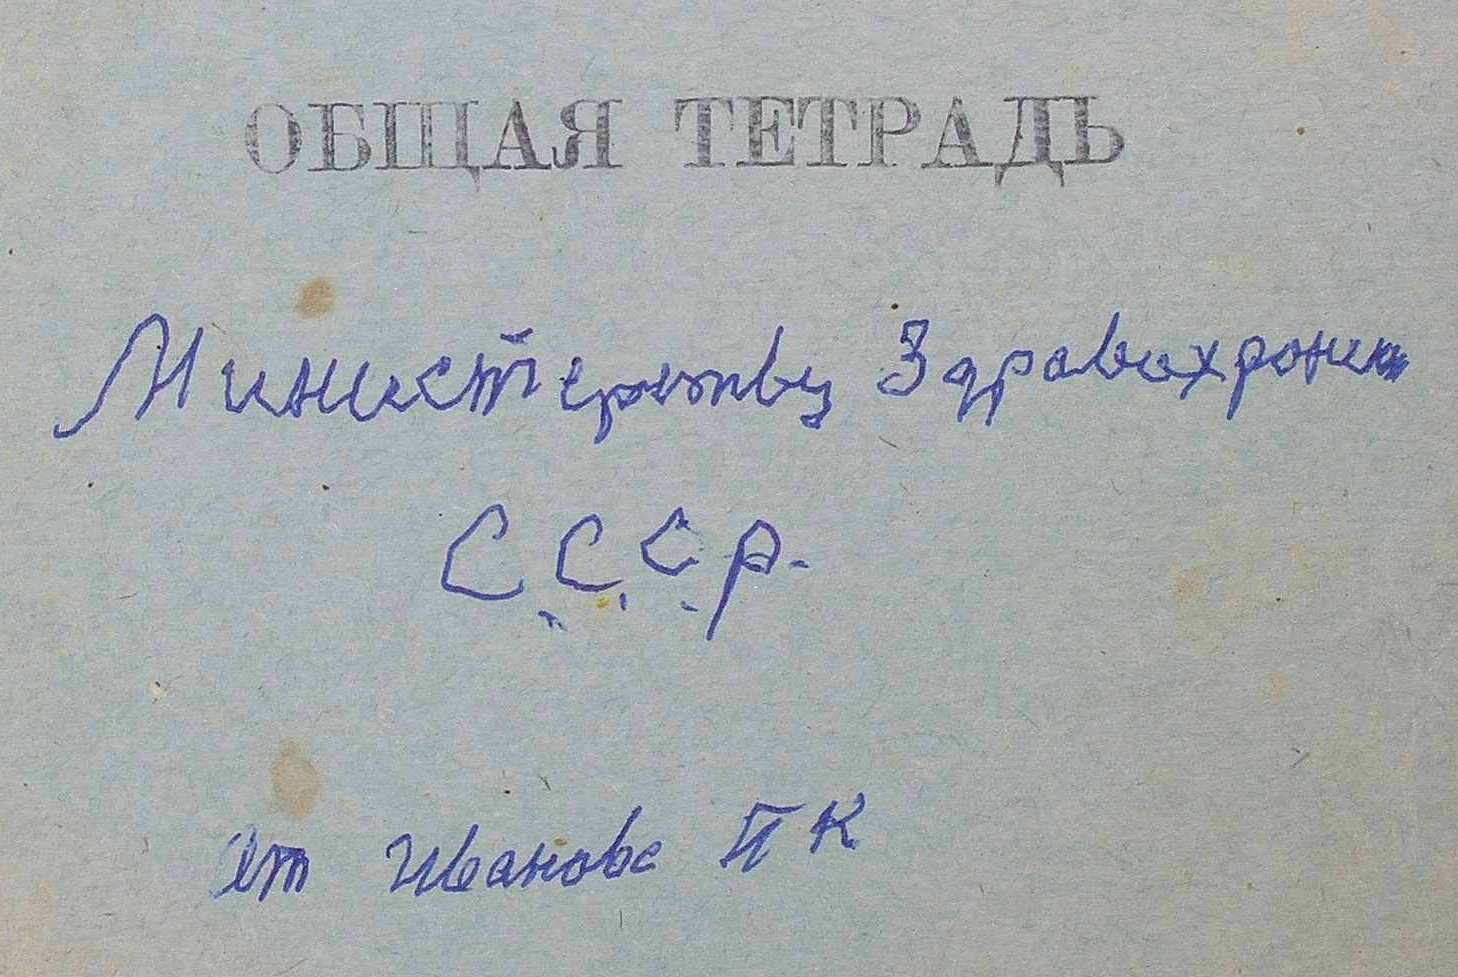 ОБЩАЯ ТЕТРАДЬ
Министерству Здравахрони
С.С.С.Р.
От Иванова П К